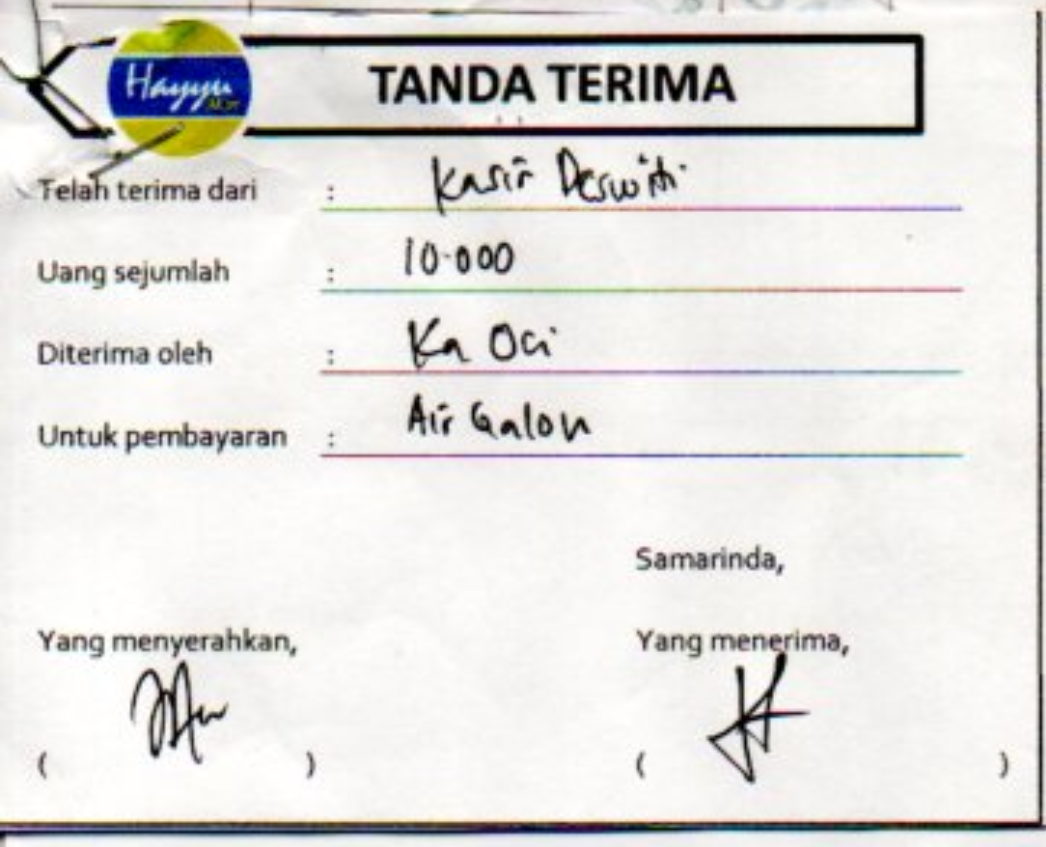 Hayyu
TANDA TERIMA
Telah terima dari : Kasir Deswita
Uang sejumlah : 10.000
Diterima oleh : Ka Oci
Untuk pembayaran : Air Galon
Samarinda,
Yang menyerahkan, Yang menerima,
( ) ( )